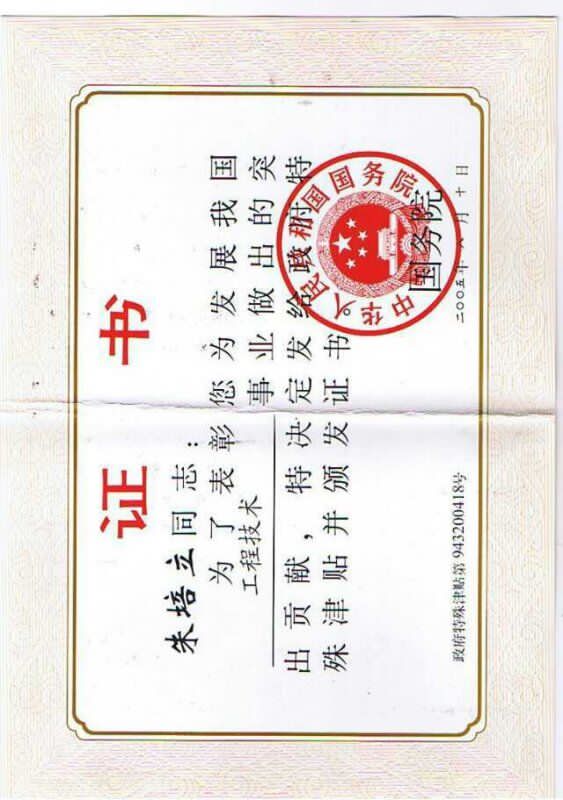 证 书
朱培立同志：
为了表彰您为发展我国
工程技术 事业做出的突
出贡献，特决定发给政府特
殊津贴并颁发证书。
中华人民共和国国务院
国务院
二〇〇五年 月十日
政府特殊津贴第 943200418号